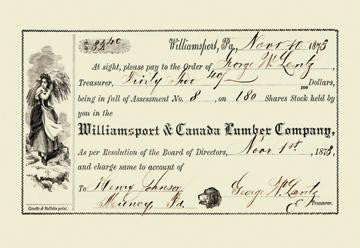 $32 40 Williamsport, Pa., Novr 10 1873
At sight, please pay to the Order of George W. Lentz,
Treasurer, Thirty Two 40/100 Dollars,
being in full of Assessment No. 8, on 180 Shares Stock held by
you in the
Williamsport & Canada Lumber Company,
As per Resolution of the Board of Directors, Novr 1st, 1873,
and charge same to account of
To Henry Johnson George W. Lentz
Muncy Pa. Treasurer.
Gazette & Bulletin print.